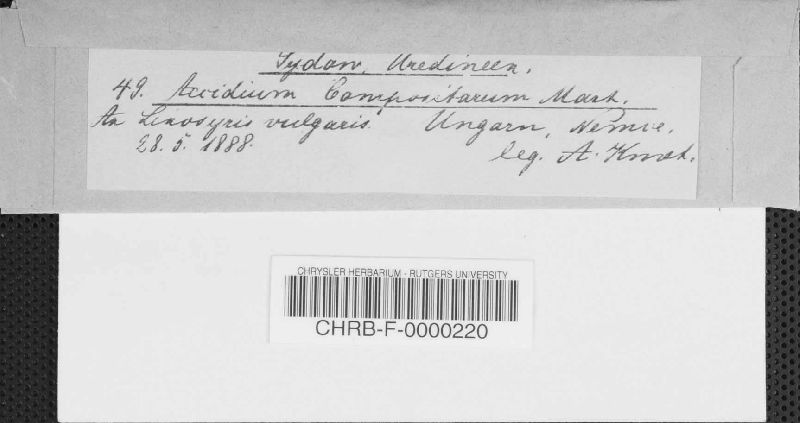 Sydow, Uredineen.
49. Aecidium Compositarum Mart.
An Linosyris vulgaris. Ungarn,
28. 5. 1888. leg. A. Kmet.
CHRYSLER HERBARIUM - RUTGERS UNIVERSITY
CHRB-F-0000220